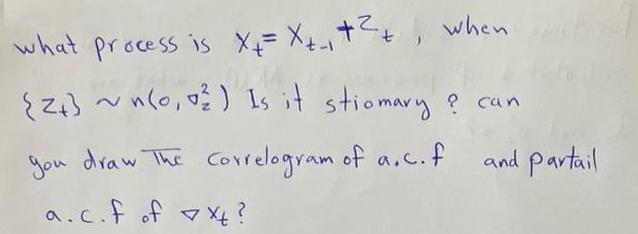 what process is X_t = X_{t-1} + Z_t , when
{Z_t} ~ n(0, σ_z^2) Is it stiomary ? can
you draw The Correlogram of a.c.f and partail
a.c.f of ▽ X_t ?